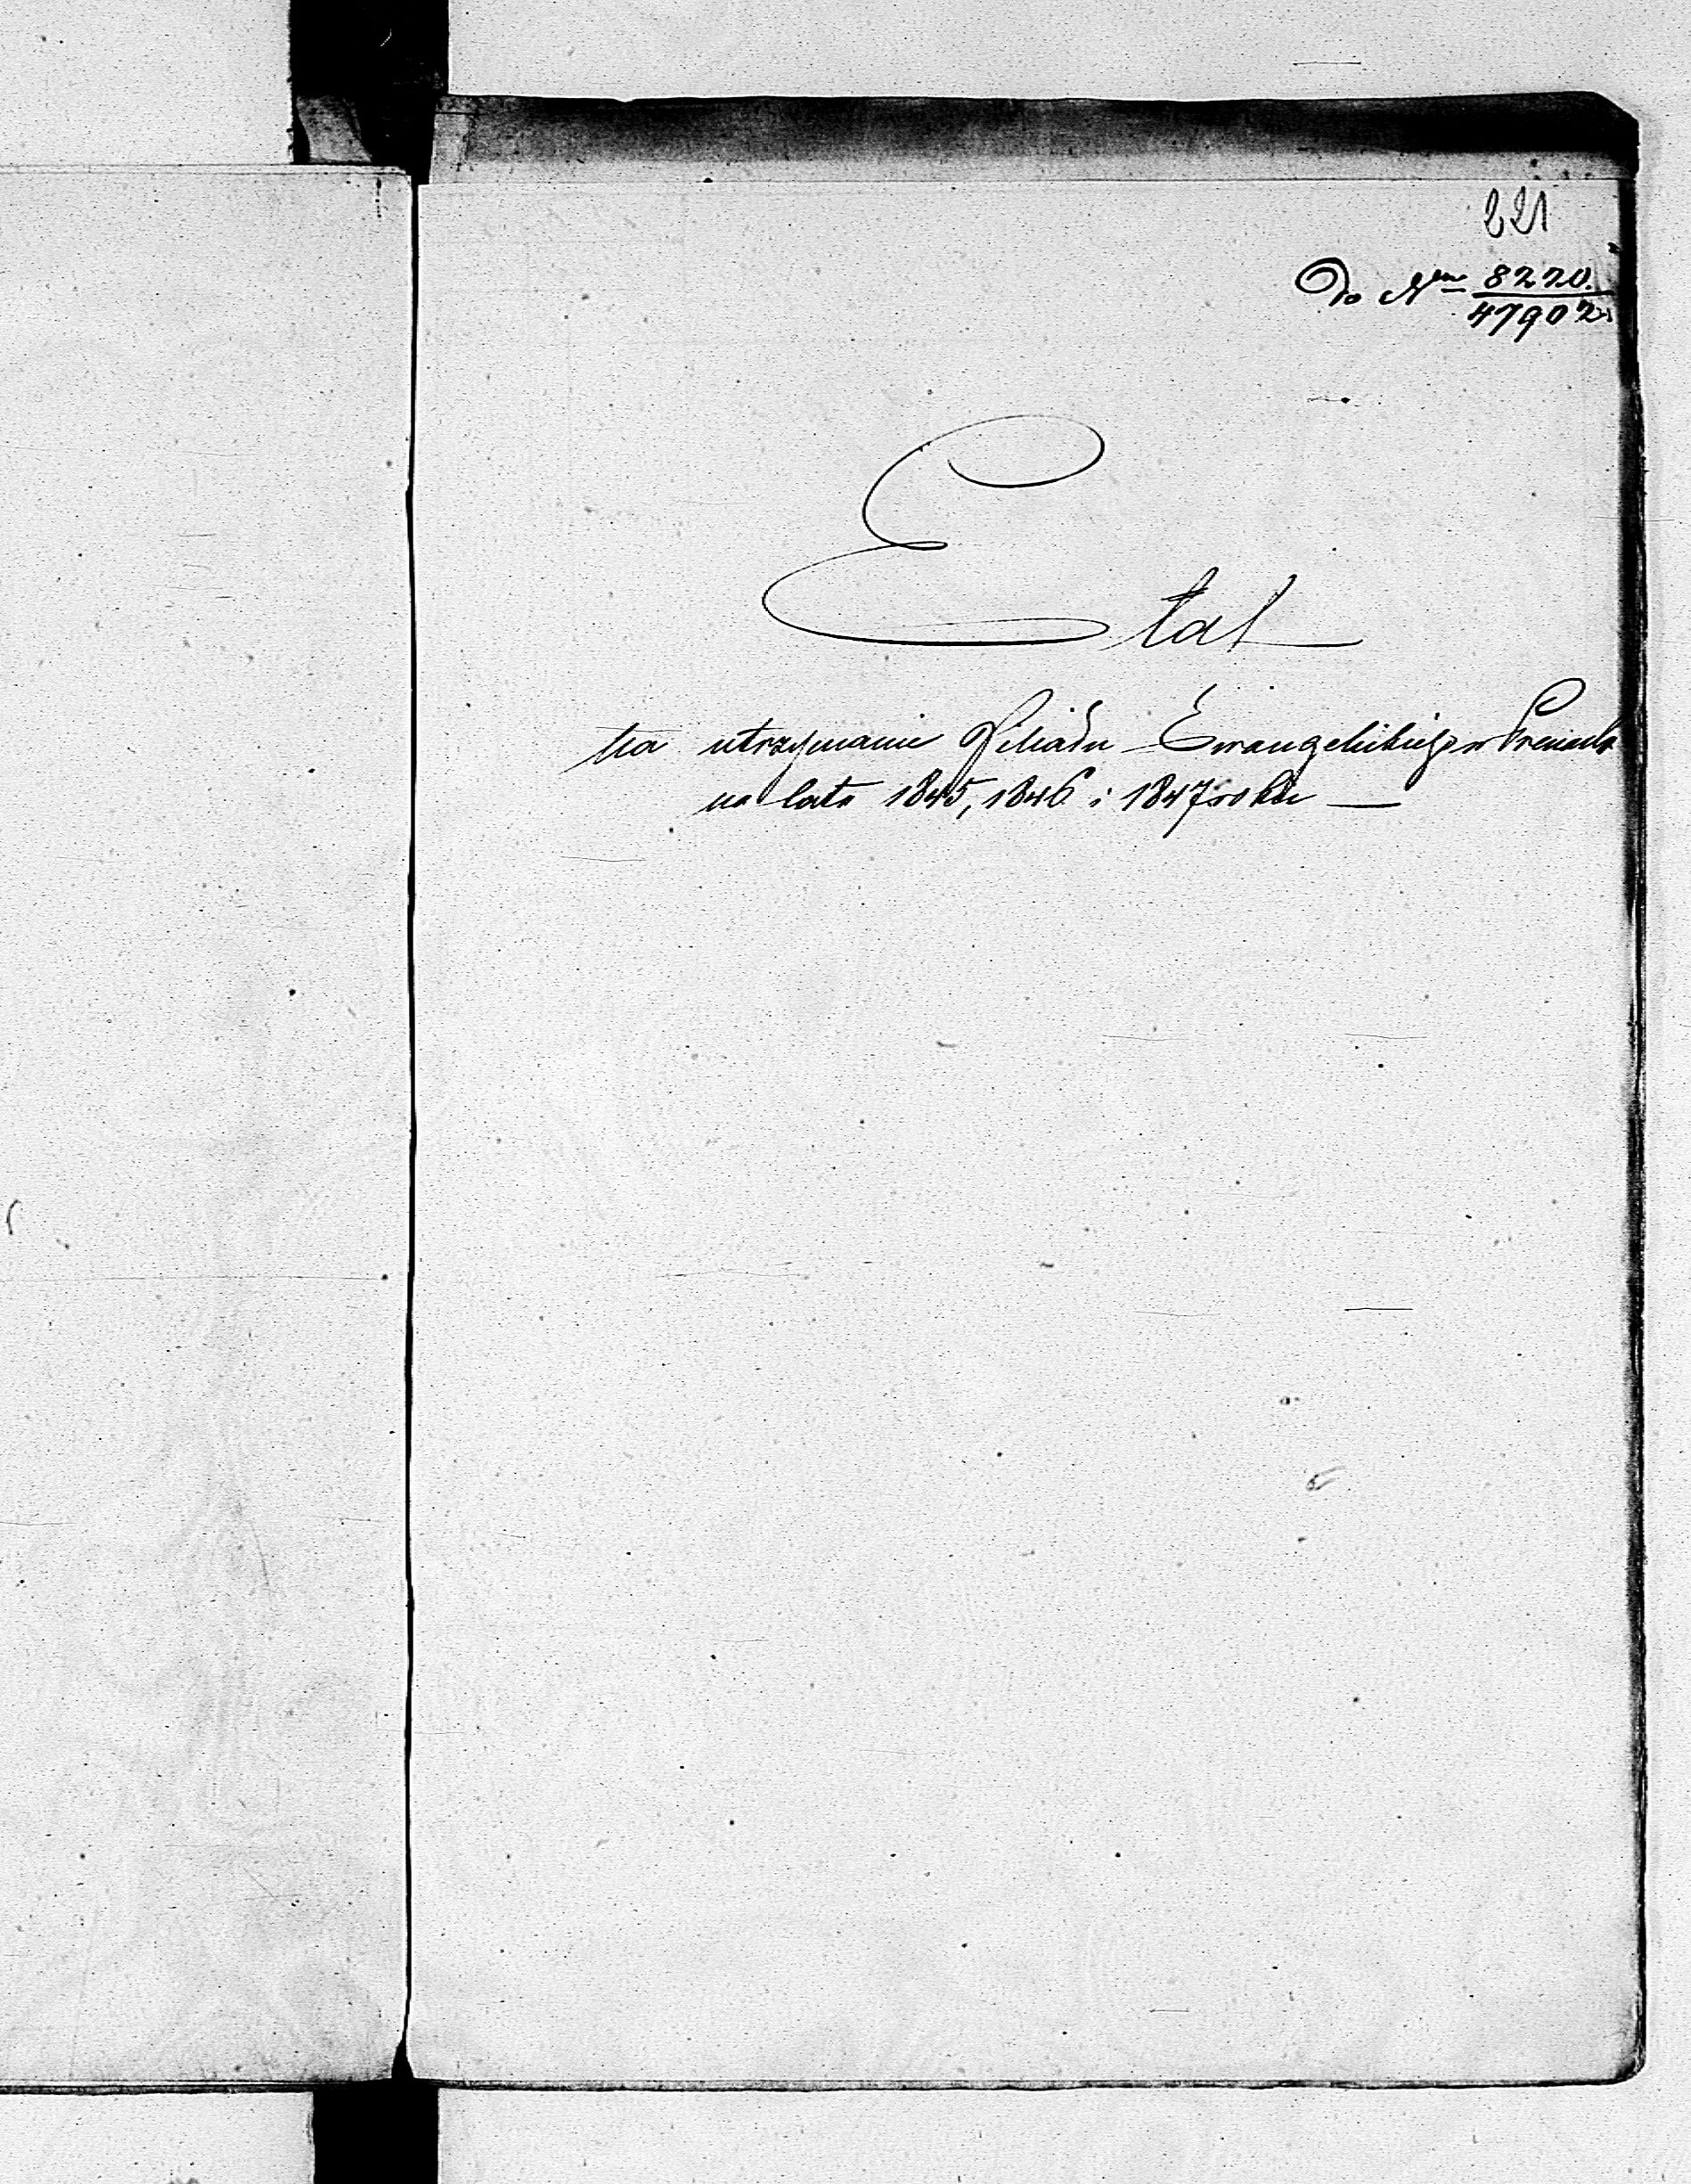 221
Do Nru 8220.
47902
Etat
na utrzymanie Filiału Ewangelickiego w
na lata 1845, 1846 i 1847 roku —